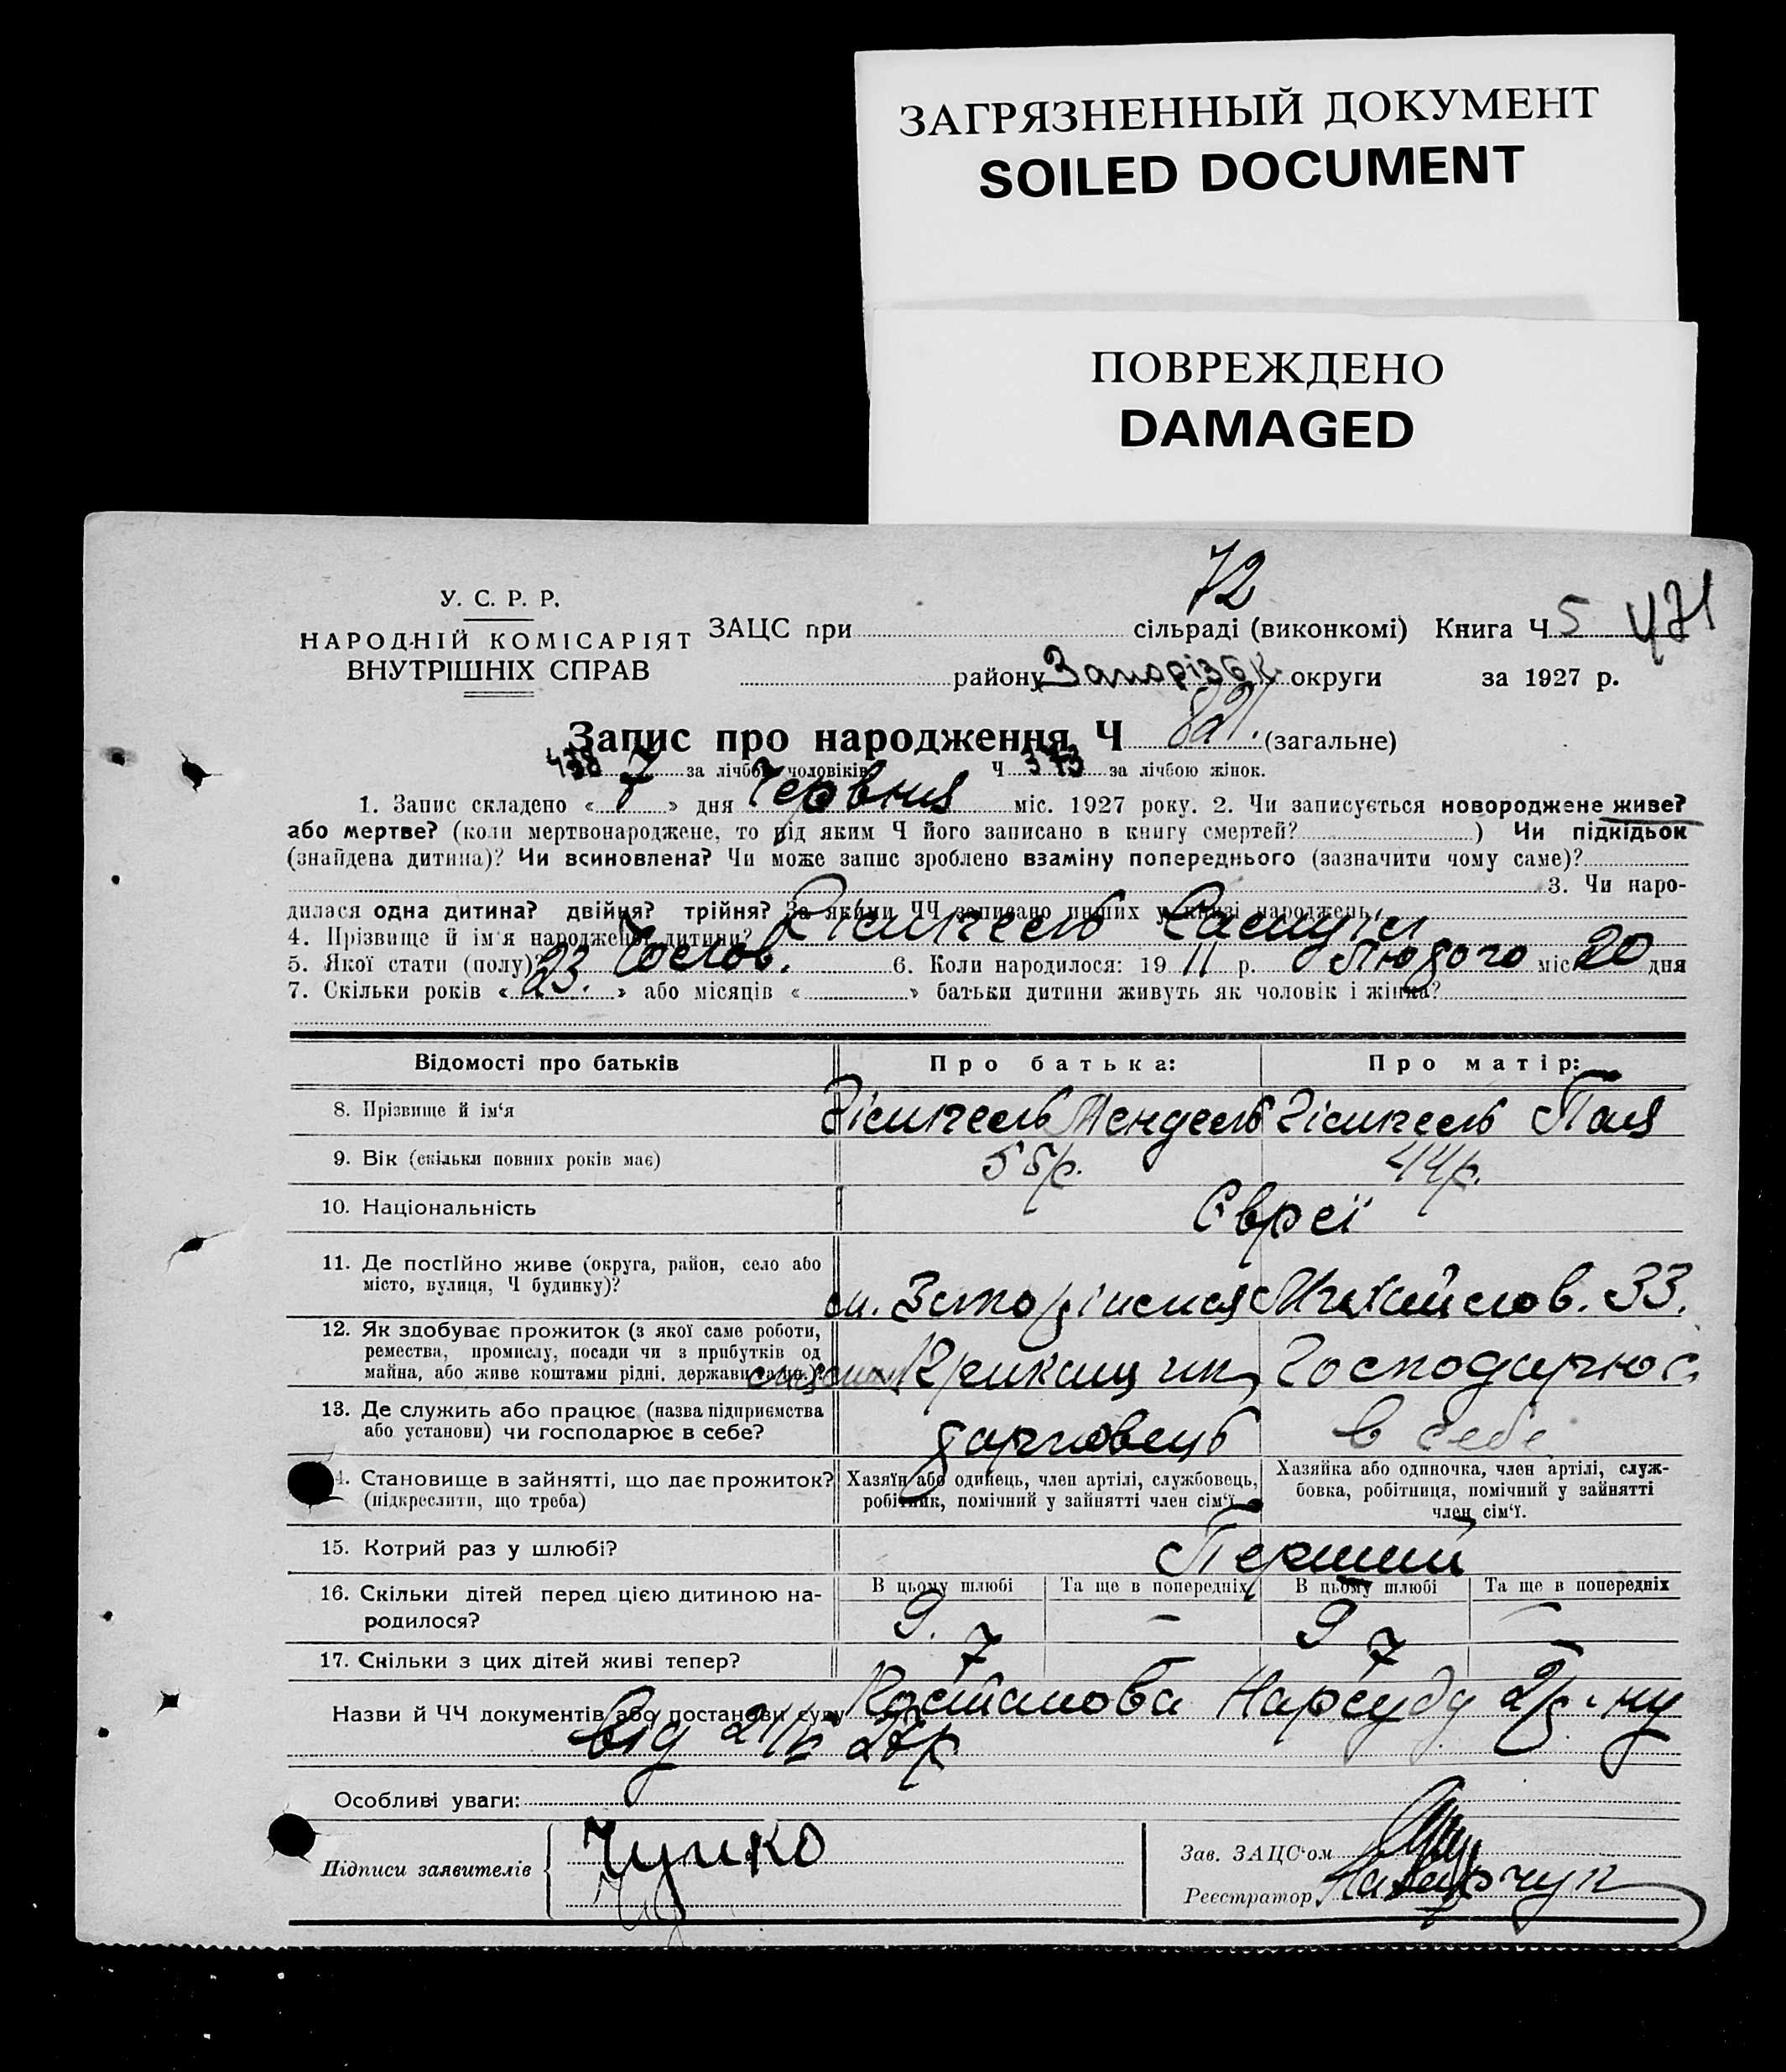 ЗАГРЯЗНЕННЫЙ ДОКУМЕНТ
SOILED DOCUMENT
ПОВРЕЖДЕНО
DAMAGED
72
У. С. Р. Р.
НАРОДНІЙ КОМІСАРІЯТ
ВНУТРІШНІХ СПРАВ
ЗАЦС при сільраді (виконкомі) Книга Ч 5 471
району Запорізьк. округи за 1927 р.
Запис про народження Ч 821. (загальне)
438 за лічбою чоловіків Ч 373 за лічбою жінок.
1. Запис складено « 7 » дня Червня міс. 1927 року. 2. Чи записується новороджене живе?
або мертве? (коли мертвонароджене, то під яким Ч його записано в книгу смертей? ) Чи підкідьок
(знайдена дитина)? Чи всиновлена? Чи може запис зроблено взаміну попереднього (зазначити чому саме)?
3. Чи наро-
дилася одна дитина? двійня? трійня? За якими ЧЧ записано инших у книзі народжень
4. Прізвище й ім'я народженої дитини?
5. Якої стати (полу)? Чолов. 6. Коли народилося: 19 11 р. Лютого міс. 20 дня
7. Скільки років « 23. » або місяців « » батьки дитини живуть як чоловік і жінка?
Відомості про батьків Про батька: Про матір:
8. Прізвище й ім'я Мендель
9. Вік (скільки повних років має) 55р. 44р.
10. Національність Євреї
11. Де постійно живе (округа, район, село або
місто, вулиця, Ч будинку)?
м. Запоріжжя Михайлов. 33.
12. Як здобуває прожиток (з якої саме роботи,
ремества, промислу, посади чи з прибутків од
майна, або живе коштами рідні, держави та ин.)?
13. Де служить або працює (назва підприємства
або установи) чи господарює в себе? в себе
14. Становище в зайнятті, що дає прожиток?
(підкреслити, що треба)
Хазяїн або одинець, член артілі, службовець,
робітник, помічний у зайнятті член сім'ї.
Хазяйка або одиночка, член артілі, служ-
бовка, робітниця, помічний у зайнятті
член сім'ї.
15. Котрий раз у шлюбі? Перший
16. Скільки дітей перед цією дитиною на-
родилося?
В цьому шлюбі Та ще в попередніх В цьому шлюбі Та ще в попередніх
9. – 9 –
17. Скільки з цих дітей живі тепер? 7 7
Назви й ЧЧ документів або постанови суду Постанова Нарсуду 2 р-ну
від 27р
Особливі уваги:
Підписи заявителів
Зав. ЗАЦС'ом
Реєстратор